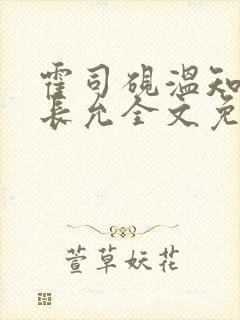 霍司砚温知
长允全文免
萱草妖花